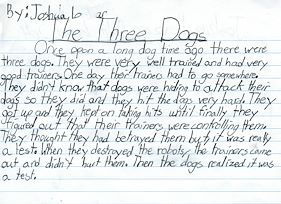 By: Joshua, 6
The Three Dogs
Once opon a long dog time ago there were
three dogs. They were very well trained and had very
good trainers. One day their trainers had to go somewhere.
They didn't know that dogs were hiding to attack their
dogs so they did and they hit the dogs very hard. They
got up and they kept on taking hits until finally they
figured out that their trainers were controlling them.
They thought they had betrayed them but it was really
a test. When they destroyed the robots the trainers came
out and didn't hurt them. Then the dogs realized it was
a test.